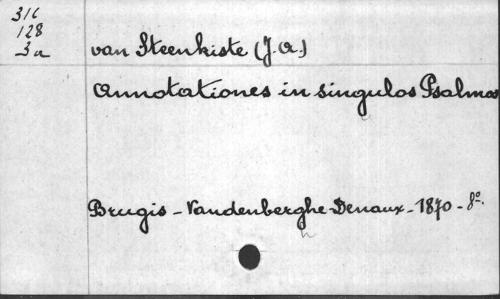 316
128
3a
van Steenkiste (J. A.)
Annotationes in singulos Psalmos
Brugis - Vandenberghe-Denaux - 1870 - 8º.